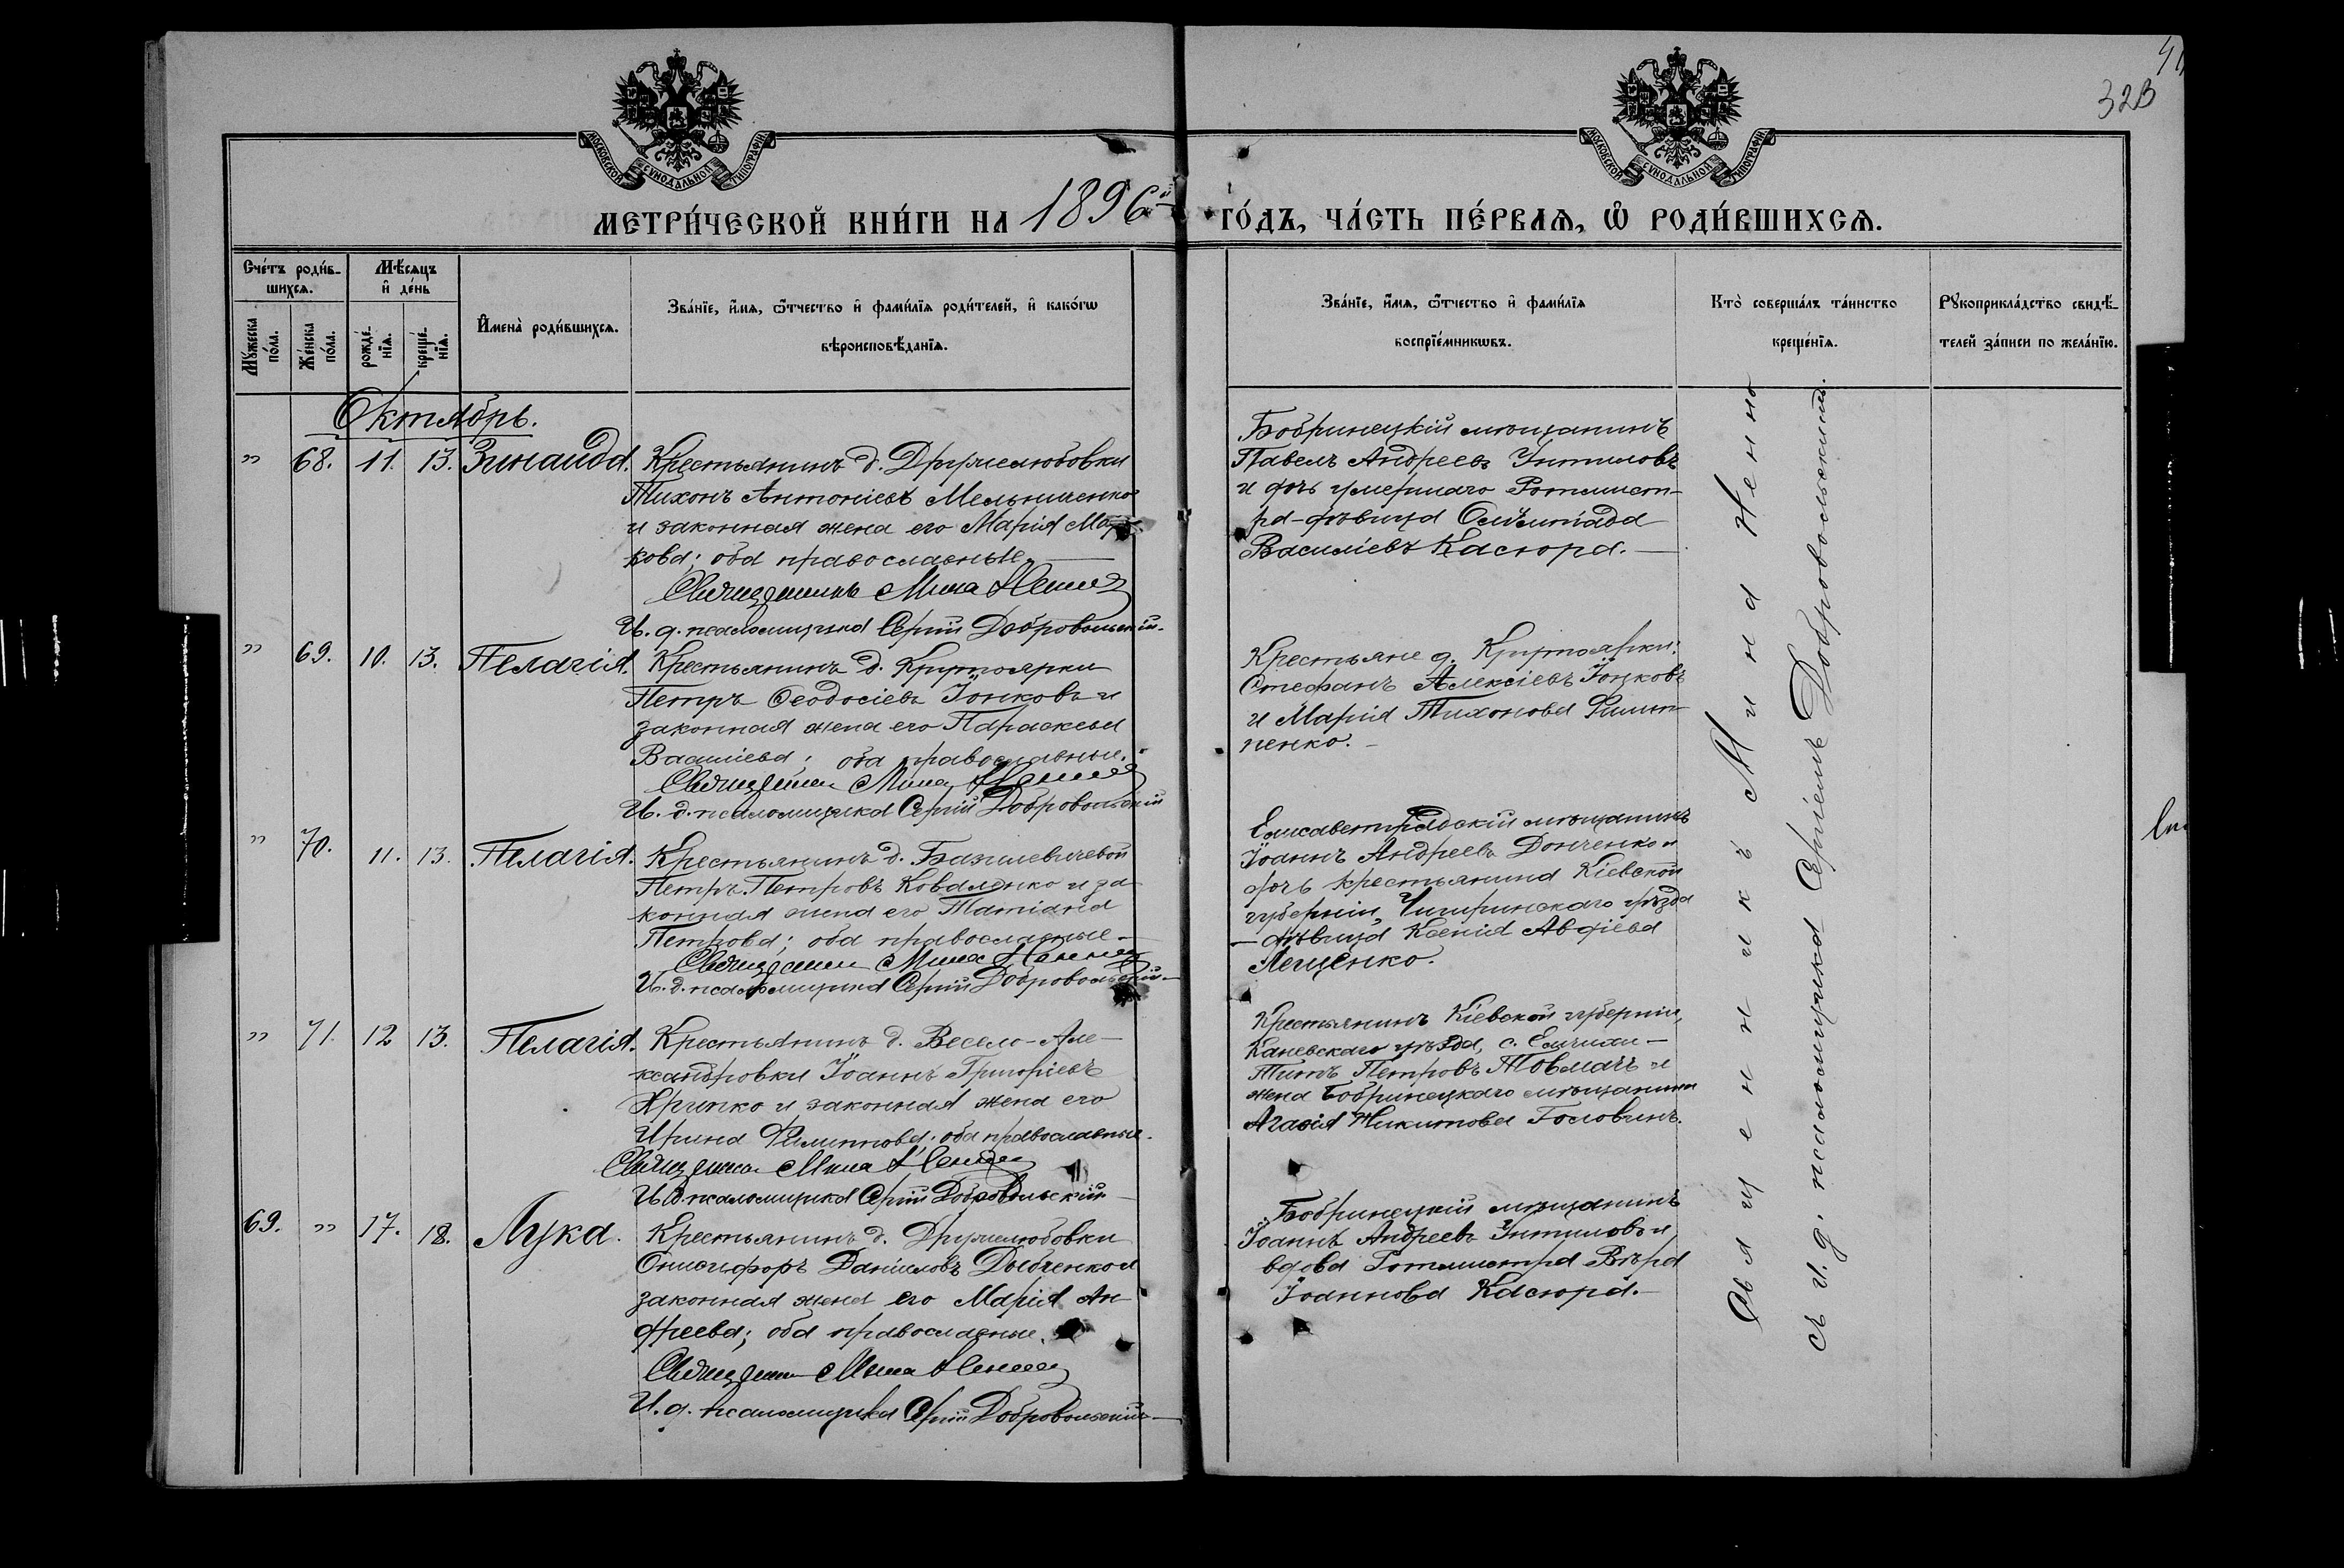 32В
МОСКОВСКОЙ СѴНОДАЛЬНОЙ ТИПОГРАФІИ
МОСКОВСКОЙ СѴНОДАЛЬНОЙ ТИПОГРАФІИ
МЕТРИ́ЧЕСКОЙ КНИ́ГИ НА 1896й
ГО́ДЪ, ЧА́СТЬ ПЕ́РВАЯ, Ѡ РОДИ́ВШИХСЯ.
Сче́тъ роди́в-
шихся.
Мѣ́сяцъ
и де́нь
Мꙋ́жеска
по́ла.
Же́нска
по́ла.
рожде́-
нїя.
креще́-
нїя.
Имена̀ роди́вшихся.
Зва́нїе, и́мя, ѻ́тчество и фами́лїя роди́телей, и како́гѡ
вѣроисповѣ́данїя.
Зва́нїе, и́мя, ѻ́тчество и фами́лїя
воспрїе́мникѡвъ.
Кто̀ соверша́лъ та́инство
креще́нїя.
Рꙋкоприкла́дство свидѣ́-
телей за́писи по жела́нїю.
Октябрь.
" 68. 11. 13. Зинаида.
Крестьянинъ д. Дружелюбовки
Тихонъ Антоніевъ Мельниченко
и законная жена его Марія Мар-
кова; оба православные.
Священникъ Мина Ненно
И. д. псаломщика Сергій Добровольскій.
Бобринецкій мѣщанинъ
Павелъ Андреевъ Унтиловъ
и дочь умершаго Ротмист-
ра-дѣвица Олимпіада
Василіева Касюра.
" 69. 10. 13. Пелагія.
Крестьянинъ д. Крутоярки
Петръ Ѳеодосіевъ Іонковъ и
законная жена его Параскева
Василіева; оба православные.
Священникъ Мина Ненно
И. д. псаломщика Сергій Добровольскій
Крестьяне д. Крутоярки:
Стефанъ Алексіевъ Іонковъ
и Марія Тихонова Филип-
пенко.
" 70. 11. 13. Пелагія.
Крестьянинъ д. Базилевичевой
Петръ Петровъ Коваленко и за-
конная жена его Татіана
Петрова; оба православные
Священникъ Мина Ненно
И. д. псаломщика Сергій Добровольскій
Елисаветградскій мѣщанинъ
Іоаннъ Андреевъ Донченко и
дочь крестьянина Кіевской
губерніи, Чигиринскаго уѣзда
дѣвица Ксенія Авдіева
Лещенко.
" 71. 12 13. Пелагія.
Крестьянинъ д. Весело-Але-
ксандровки Іоаннъ Григоріевъ
Хрипко и законная жена его
Ирина Филиппова; оба православные.
Священникъ Мина Ненно
И д. псаломщика Сергій Добровольскій
Крестьянинъ Кіевской губерніи,
Каневскаго уѣзда, с.
Титъ Петровъ Товмачъ и
жена Бобринецкаго мѣщанина
Агафія Никитова Головинъ.
69. " 17. 18. Лука.
Крестьянинъ д. Дружелюбовки
Онисифоръ Даніиловъ Дыбченко и
законная жена его Марія Ан-
дреева; оба православные.
Священникъ Мина Ненно
И. д. псаломщика Сергій Добровольскій
Бобринецкій мѣщанинъ
Іоаннъ Андреевъ Унтиловъ и
вдова Ротмистра Вѣра
Іоаннова Касюра.
Священникъ Мина Ненно
съ и. д. псаломщика Сергіемъ Добровольскимъ.